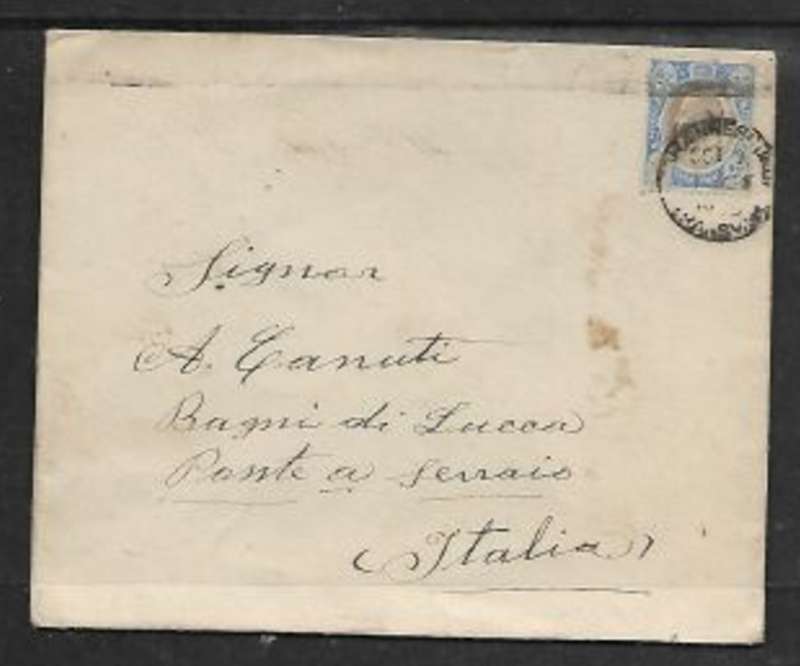 Signor
A. Canuti
Bagni di Lucca
Ponte a Serraio
(Italia)